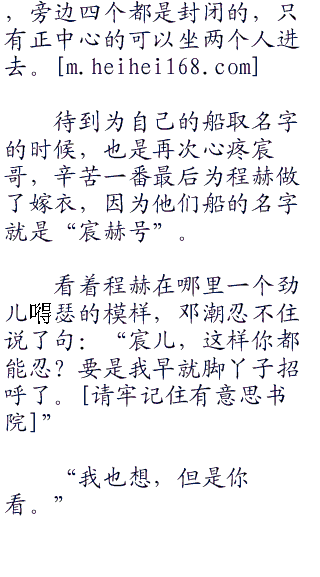 ，旁边四个都是封闭的，只
有正中心的可以坐两个人进
去。[m.heihei168.com]
待到为自己的船取名字
的时候，也是再次心疼宸
哥，辛苦一番最后为程赫做
了嫁衣，因为他们船的名字
就是“宸赫号”。
看着程赫在哪里一个劲
儿嘚瑟的模样，邓潮忍不住
说了句：“宸儿，这样你都
能忍？要是我早就脚丫子招
呼了。[请牢记住有意思书
院]”
“我也想，但是你
看。”